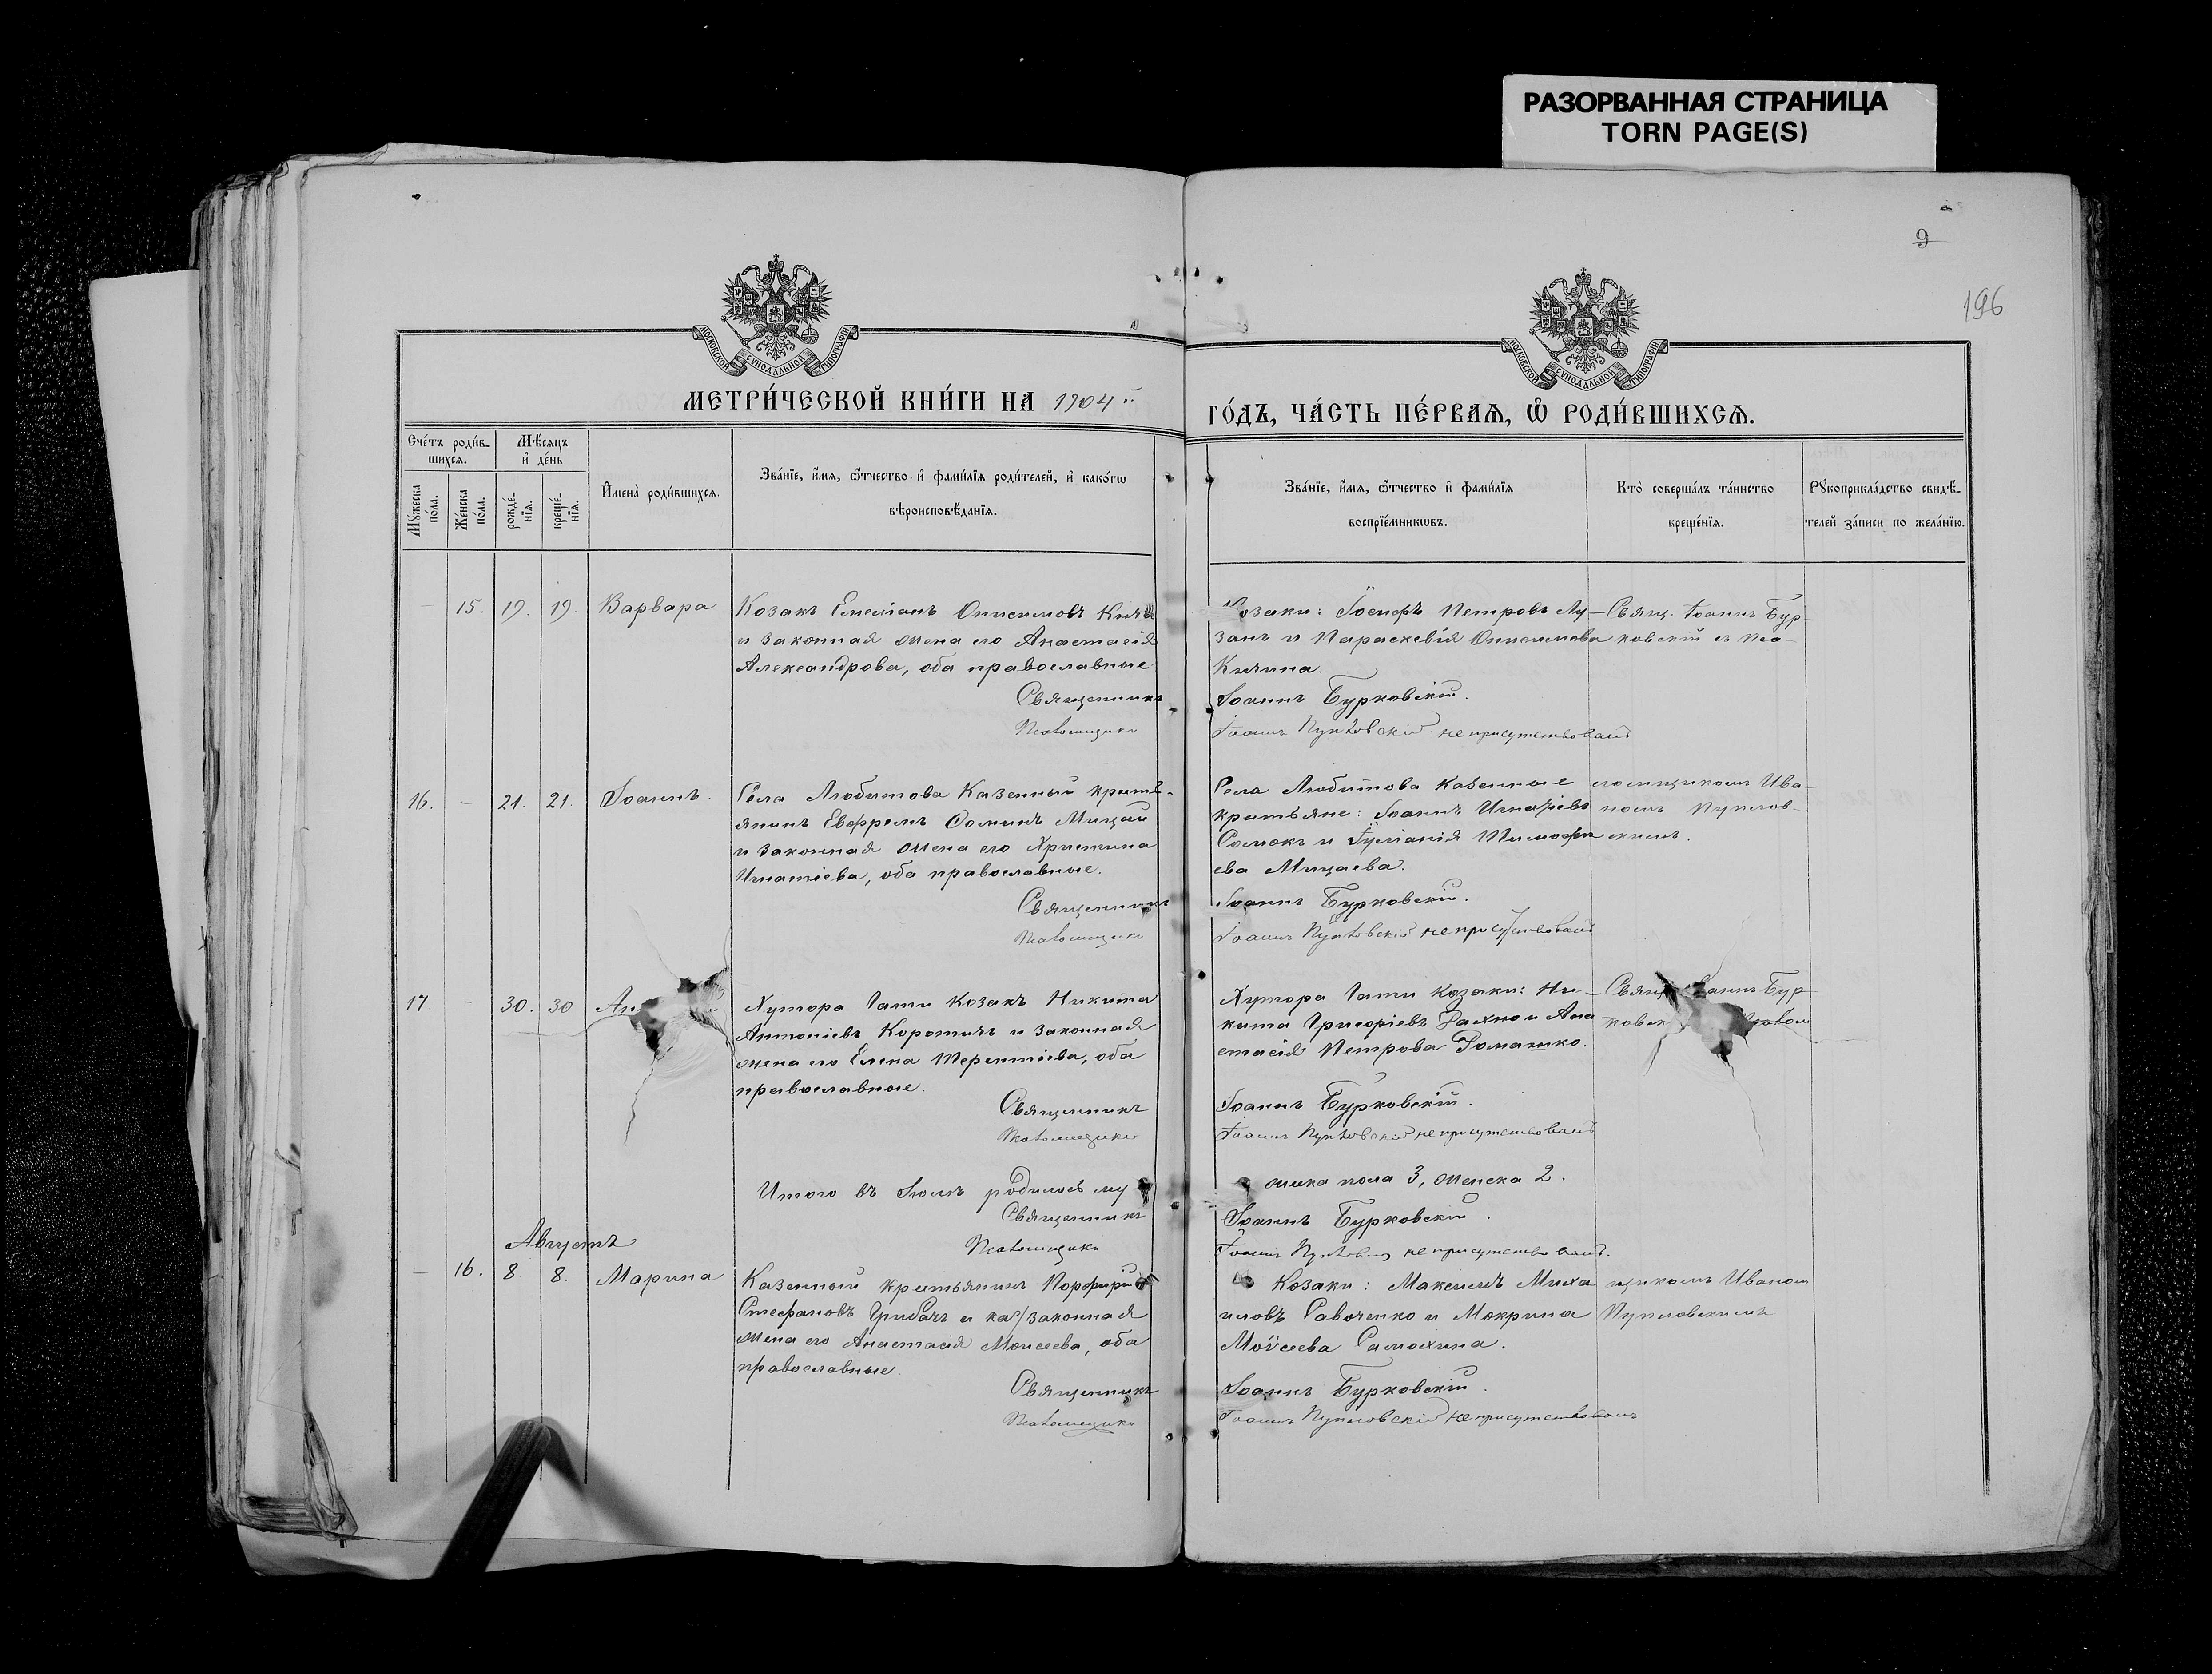 РАЗОРВАННАЯ СТРАНИЦА
TORN PAGE(S)
9
196
МОСКОВСКОЙ СУНОДАЛЬНОЙ ТИПОГРАФІИ
МОСКОВСКОЙ СУНОДАЛЬНОЙ ТИПОГРАФІИ
МЕТРИ́ЧЕСКОЙ КНИ́ГИ НА 1904
ГО́ДЪ, ЧА́СТЬ ПЕ́РВАѦ, Ѽ РОДИ́ВШИХСѦ.
Сче́тъ роди́в-
шихсѧ.
Мѣ́сѧцъ
и҆ де́нь
Мꙋ́жеска
по́ла.
Же́нска
по́ла.
рожде́-
нїѧ.
креще́-
нїѧ.
И҆мена̀ роди́вшихсѧ.
Зва́нїе, и҆́мѧ, ѻ҆́тчество и҆ фами́лїѧ роди́телей, и҆ како́гѡ
вѣроисповѣ́данїѧ.
Зва́нїе, и҆́мѧ, ѻ҆́тчество и҆ фами́лїѧ
воспрїе́мникѡвъ.
Кто̀ соверша́лъ та́инство
креще́нїѧ.
Рꙋкоприкла́дство свидѣ́-
телей за́писи по жела́нїю.
15. 19. 19. Варвара
Козакъ Емеліанъ Онисимовъ
и законная жена его Анастасія
Александрова, оба православные
Священникъ
Псаломщикъ
Козаки: Іосифъ Петровъ Лу-
занъ и Параскевія Онисимова
Кичина.
Іоаннъ Бурковскій.
Іоаннъ не присутствовалъ
Свящ. Іоаннъ Бур-
ковскій съ пса-
16. - 21. 21. Іоаннъ.
Села Любитова Казенный кресть-
янинъ Евфремъ Ѳоминъ Мицай
и законная жена его Христина
Игнатіева, оба православные.
Священникъ
Псаломщикъ
Села Любитова Казенные
крестьяне: Іоаннъ Игнатіевъ
Самокъ и Іуліанія Тимофе
ева Мицаева.
Іоаннъ Бурковскій.
Іоаннъ не присутствовалъ
ломщикомъ Ива-
номъ
скимъ.
17 - 30. 30
Хутора Гати Козакъ Никита
Антоніевъ Коротичъ и законная
жена его Елена Терентіева, оба
православные.
Священникъ
Псаломщикъ
Хутора Гати Козаки: Ни-
кита Григоріевъ Рахно и Ана
стасія Петрова Ромашко.
Іоаннъ Бурковскій.
Іоаннъ не присутствовалъ
Бур-
Итого въ Іюлѣ родилось му
жска пола 3, женска 2.
Священникъ
Іоаннъ Бурковскій.
Псаломщикъ
Іоаннъ не присутствовалъ.
Августъ
- 16. 8. 8. Марина
Казенный крестьянинъ Порфирій
Стефановъ Грибачъ и законная
жена его Анастасія Моисеева, оба
православные.
Священникъ
Псаломщикъ
Козаки: Максимъ Миха
иловъ Савченко и Мокрина
Моѵсеева Самохина.
Іоаннъ Бурковскій.
Іоаннъ не присутствовалъ
щикомъ Иваномъ